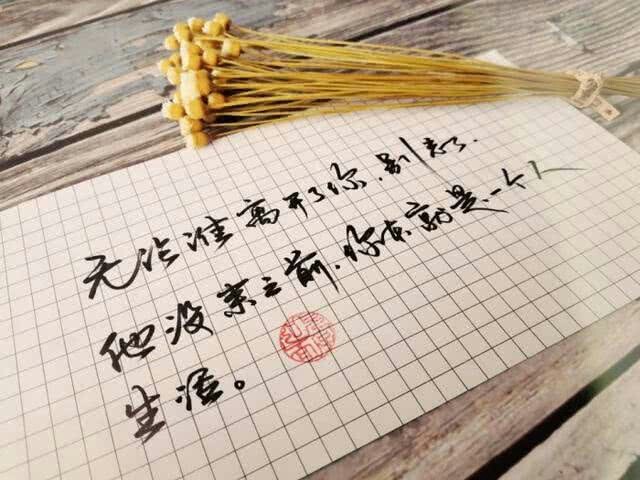 无论谁离开了你,别忘了.
他没来之前,你本就是一个人
生活。